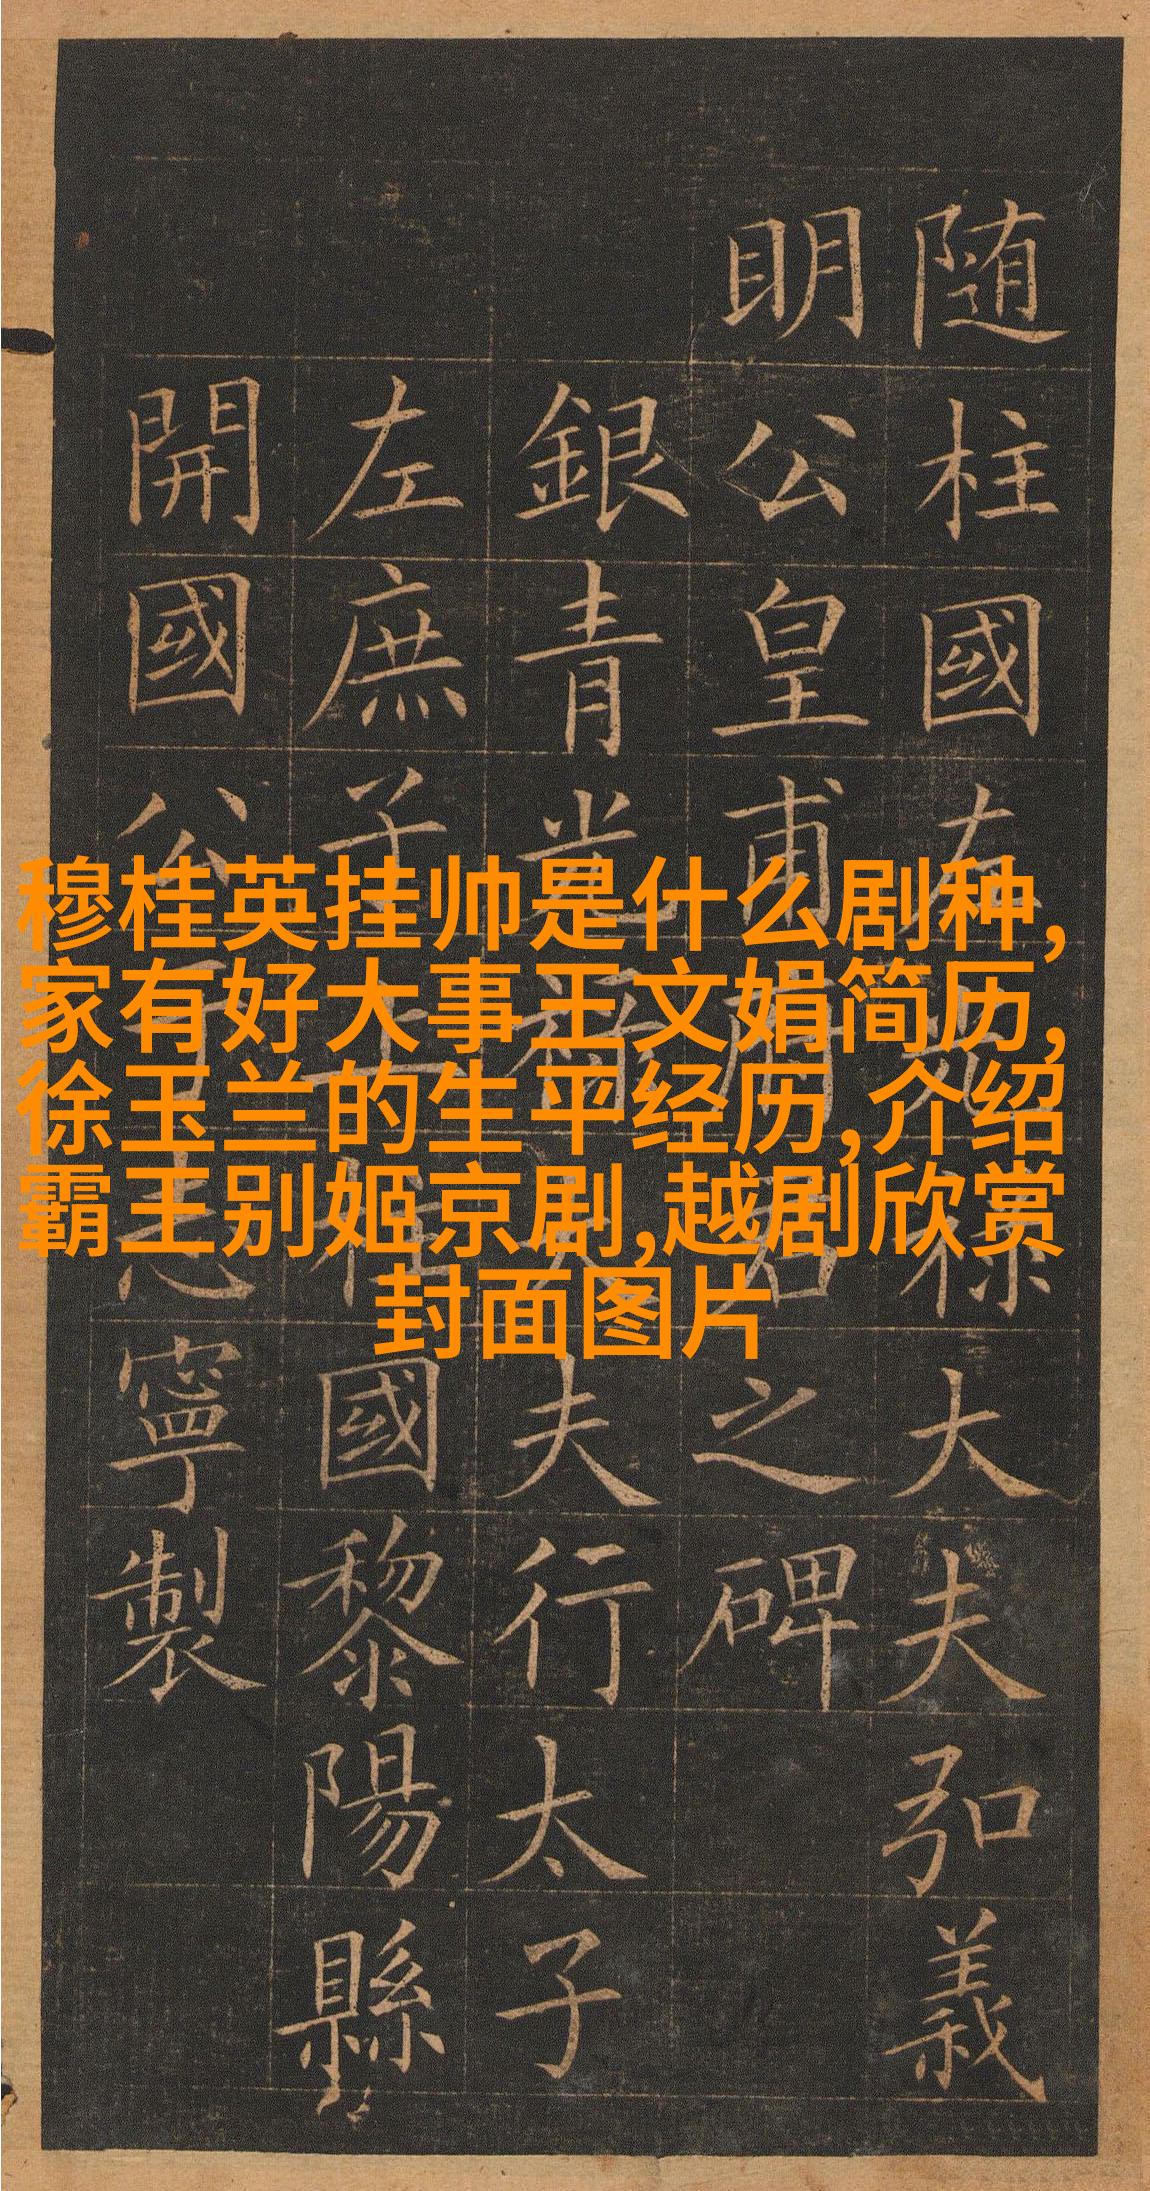 穆桂英挂帅是什么剧种,
家有好大事王文娟简历,
徐玉兰的生平经历,介绍
霸王别姬京剧,越剧欣赏
封面图片
随柱國左光禄大夫弘義
明公皇甫府君之碑
銀青光禄大夫行太子
左庶子上柱國黎陽縣
開國公于志寧製